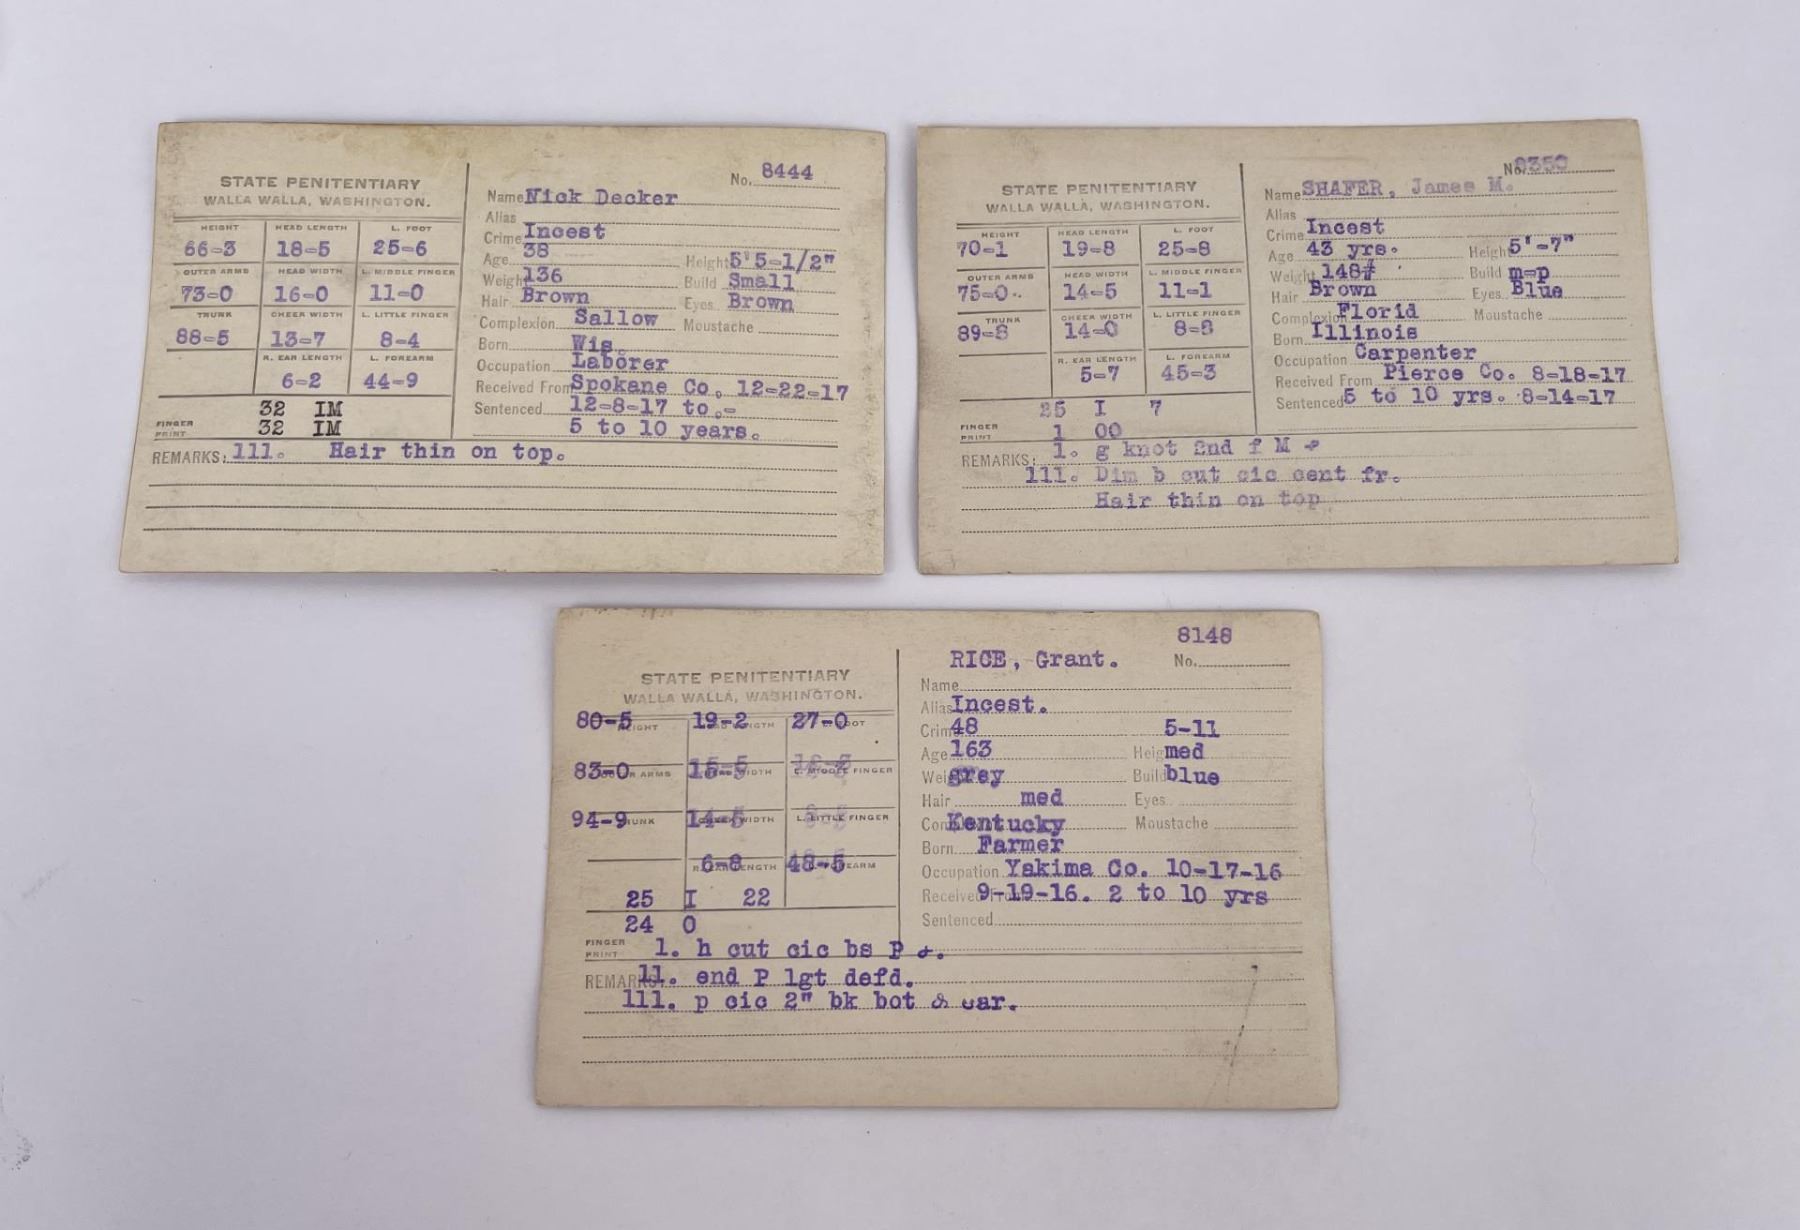 STATE PENITENTIARY
WALLA WALLA, WASHINGTON.
HEIGHT HEAD LENGTH L. FOOT
66-3 18-5 25-6
OUTER ARMS HEAD WIDTH L. MIDDLE FINGER
73-0 16-0 11-0
TRUNK CHEEK WIDTH L. LITTLE FINGER
88-5 13-7 8-4
R. EAR LENGTH L. FOREARM
6-2 44-9
32 IM
FINGER PRINT 32 IM
No. 8444
Name Nick Decker
Alias
Crime Incest
Age 38 Height 5'5-1/2"
Weight 136 Build Small
Hair Brown Eyes Brown
Complexion Sallow Moustache
Born Wis.
Occupation Laborer
Received From Spokane Co. 12-22-17
Sentenced 12-8-17 to.-
5 to 10 years.
REMARKS: 111. Hair thin on top.
STATE PENITENTIARY
WALLA WALLA, WASHINGTON.
HEIGHT HEAD LENGTH L. FOOT
70-1 19-8 25-8
OUTER ARMS HEAD WIDTH L. MIDDLE FINGER
75-0 14-5 11-1
TRUNK CHEEK WIDTH L. LITTLE FINGER
89-8 14-0 8-8
R. EAR LENGTH L. FOREARM
5-7 45-3
25 I 7
FINGER PRINT 1 00
No.
Name SHAFER, James M.
Alias
Crime Incest
Age 43 yrs. Height 5'-7"
Weight 148# Build m-p
Hair Brown Eyes Blue
Complexion Florid Moustache
Born Illinois
Occupation Carpenter
Received From Pierce Co. 8-18-17
Sentenced 5 to 10 yrs. 8-14-17
REMARKS: 1. g knot 2nd f M
111. Dim b cut cic cent fr.
Hair thin on top
STATE PENITENTIARY
WALLA WALLA, WASHINGTON.
80-5 19-2 27-0
HEIGHT LENGTH FOOT
83-0 15-5
ARMS WIDTH L. MIDDLE FINGER
94-9 14-5
TRUNK WIDTH L. LITTLE FINGER
6-8 48-5
R. EAR LENGTH FOREARM
25 I 22
24 0
FINGER PRINT
8148
RICE, Grant. No.
Name
Alias Incest.
Crime 48 5-11
Age 163 Height med
Weight grey Build blue
Hair med Eyes
Complexion Kentucky Moustache
Born Farmer
Occupation Yakima Co. 10-17-16
Received From 9-19-16. 2 to 10 yrs
Sentenced
1. h cut cic bs P
REMARKS: 11. end P lgt defd.
111. p cic 2" bk bot & ear.